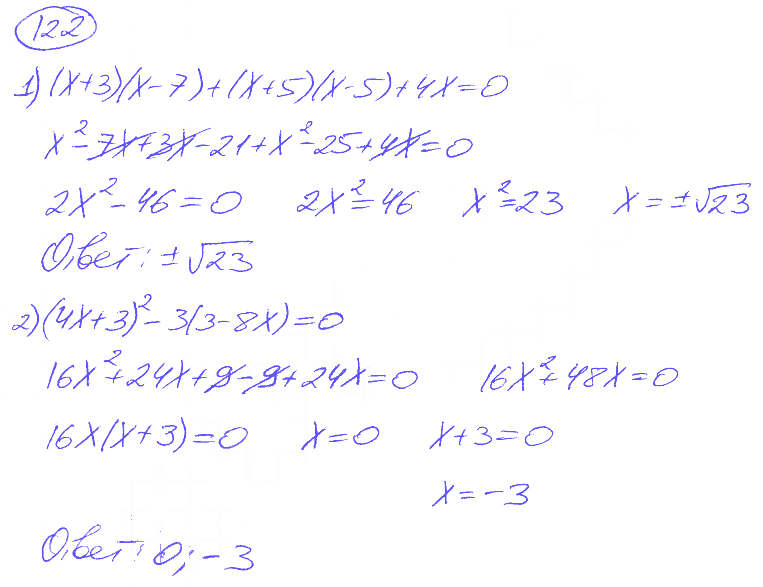 122
1) (x+3)(x-7)+(x+5)(x-5)+4x=0
x²-7x+3x-21+x²-25+4x=0
2x²-46=0 2x²=46 x²=23 x=±√23
Ответ: ±√23
2) (4x+3)²-3(3-8x)=0
16x²+24x+9-9+24x=0 16x²+48x=0
16x(x+3)=0 x=0 x+3=0
x=-3
Ответ: 0; -3